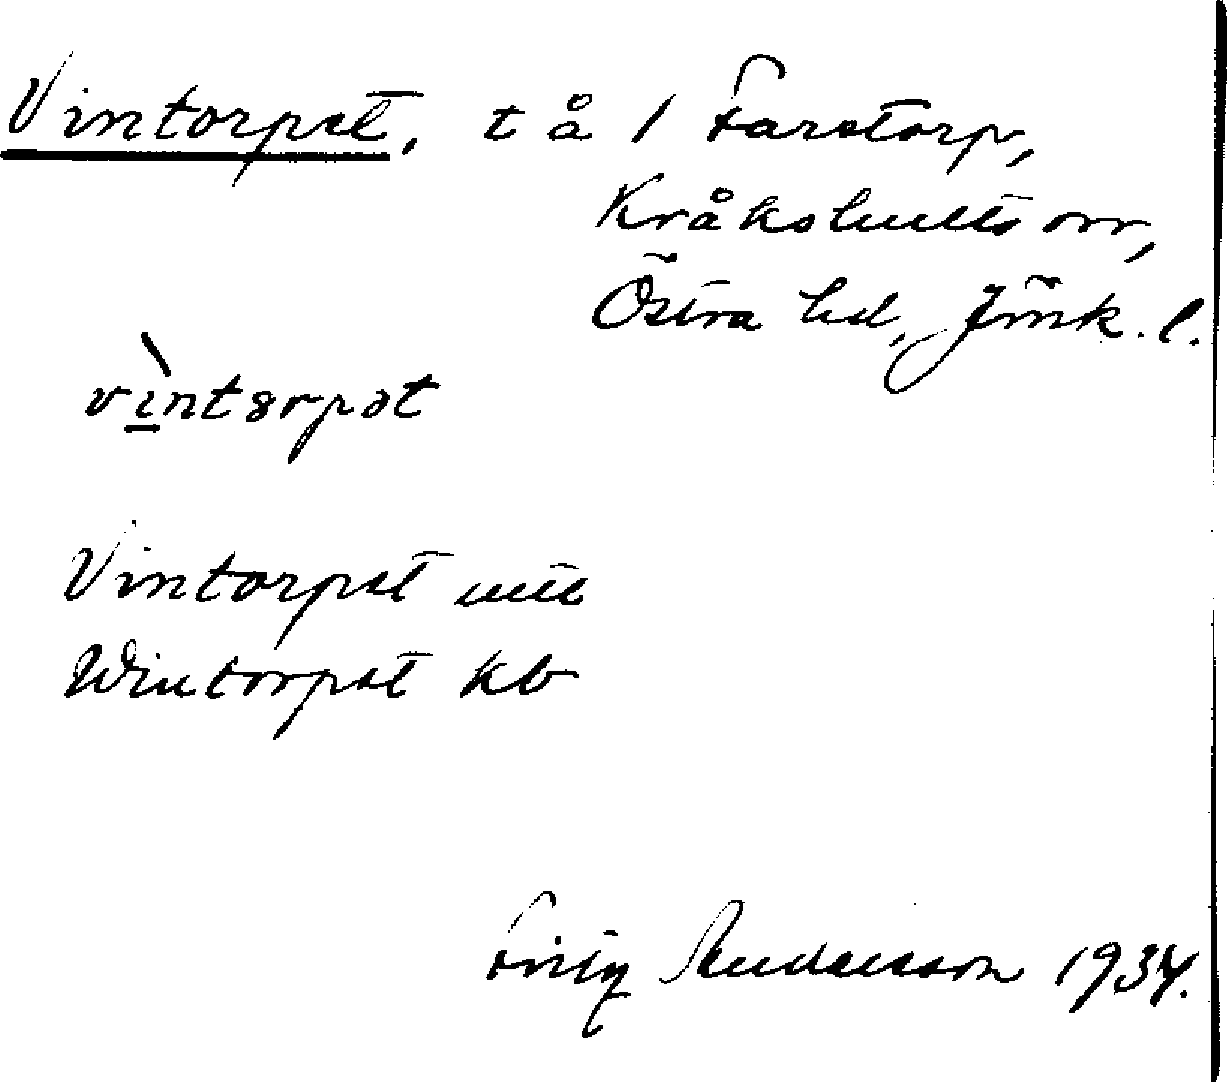 Vintorpet, t å 1 Farstorp,
Kråkshults sn,
Östra hd, Jönk. l.
vìntørpət
Vintorpet utt
Wintorpet kb
Fritz Andersson 1934.